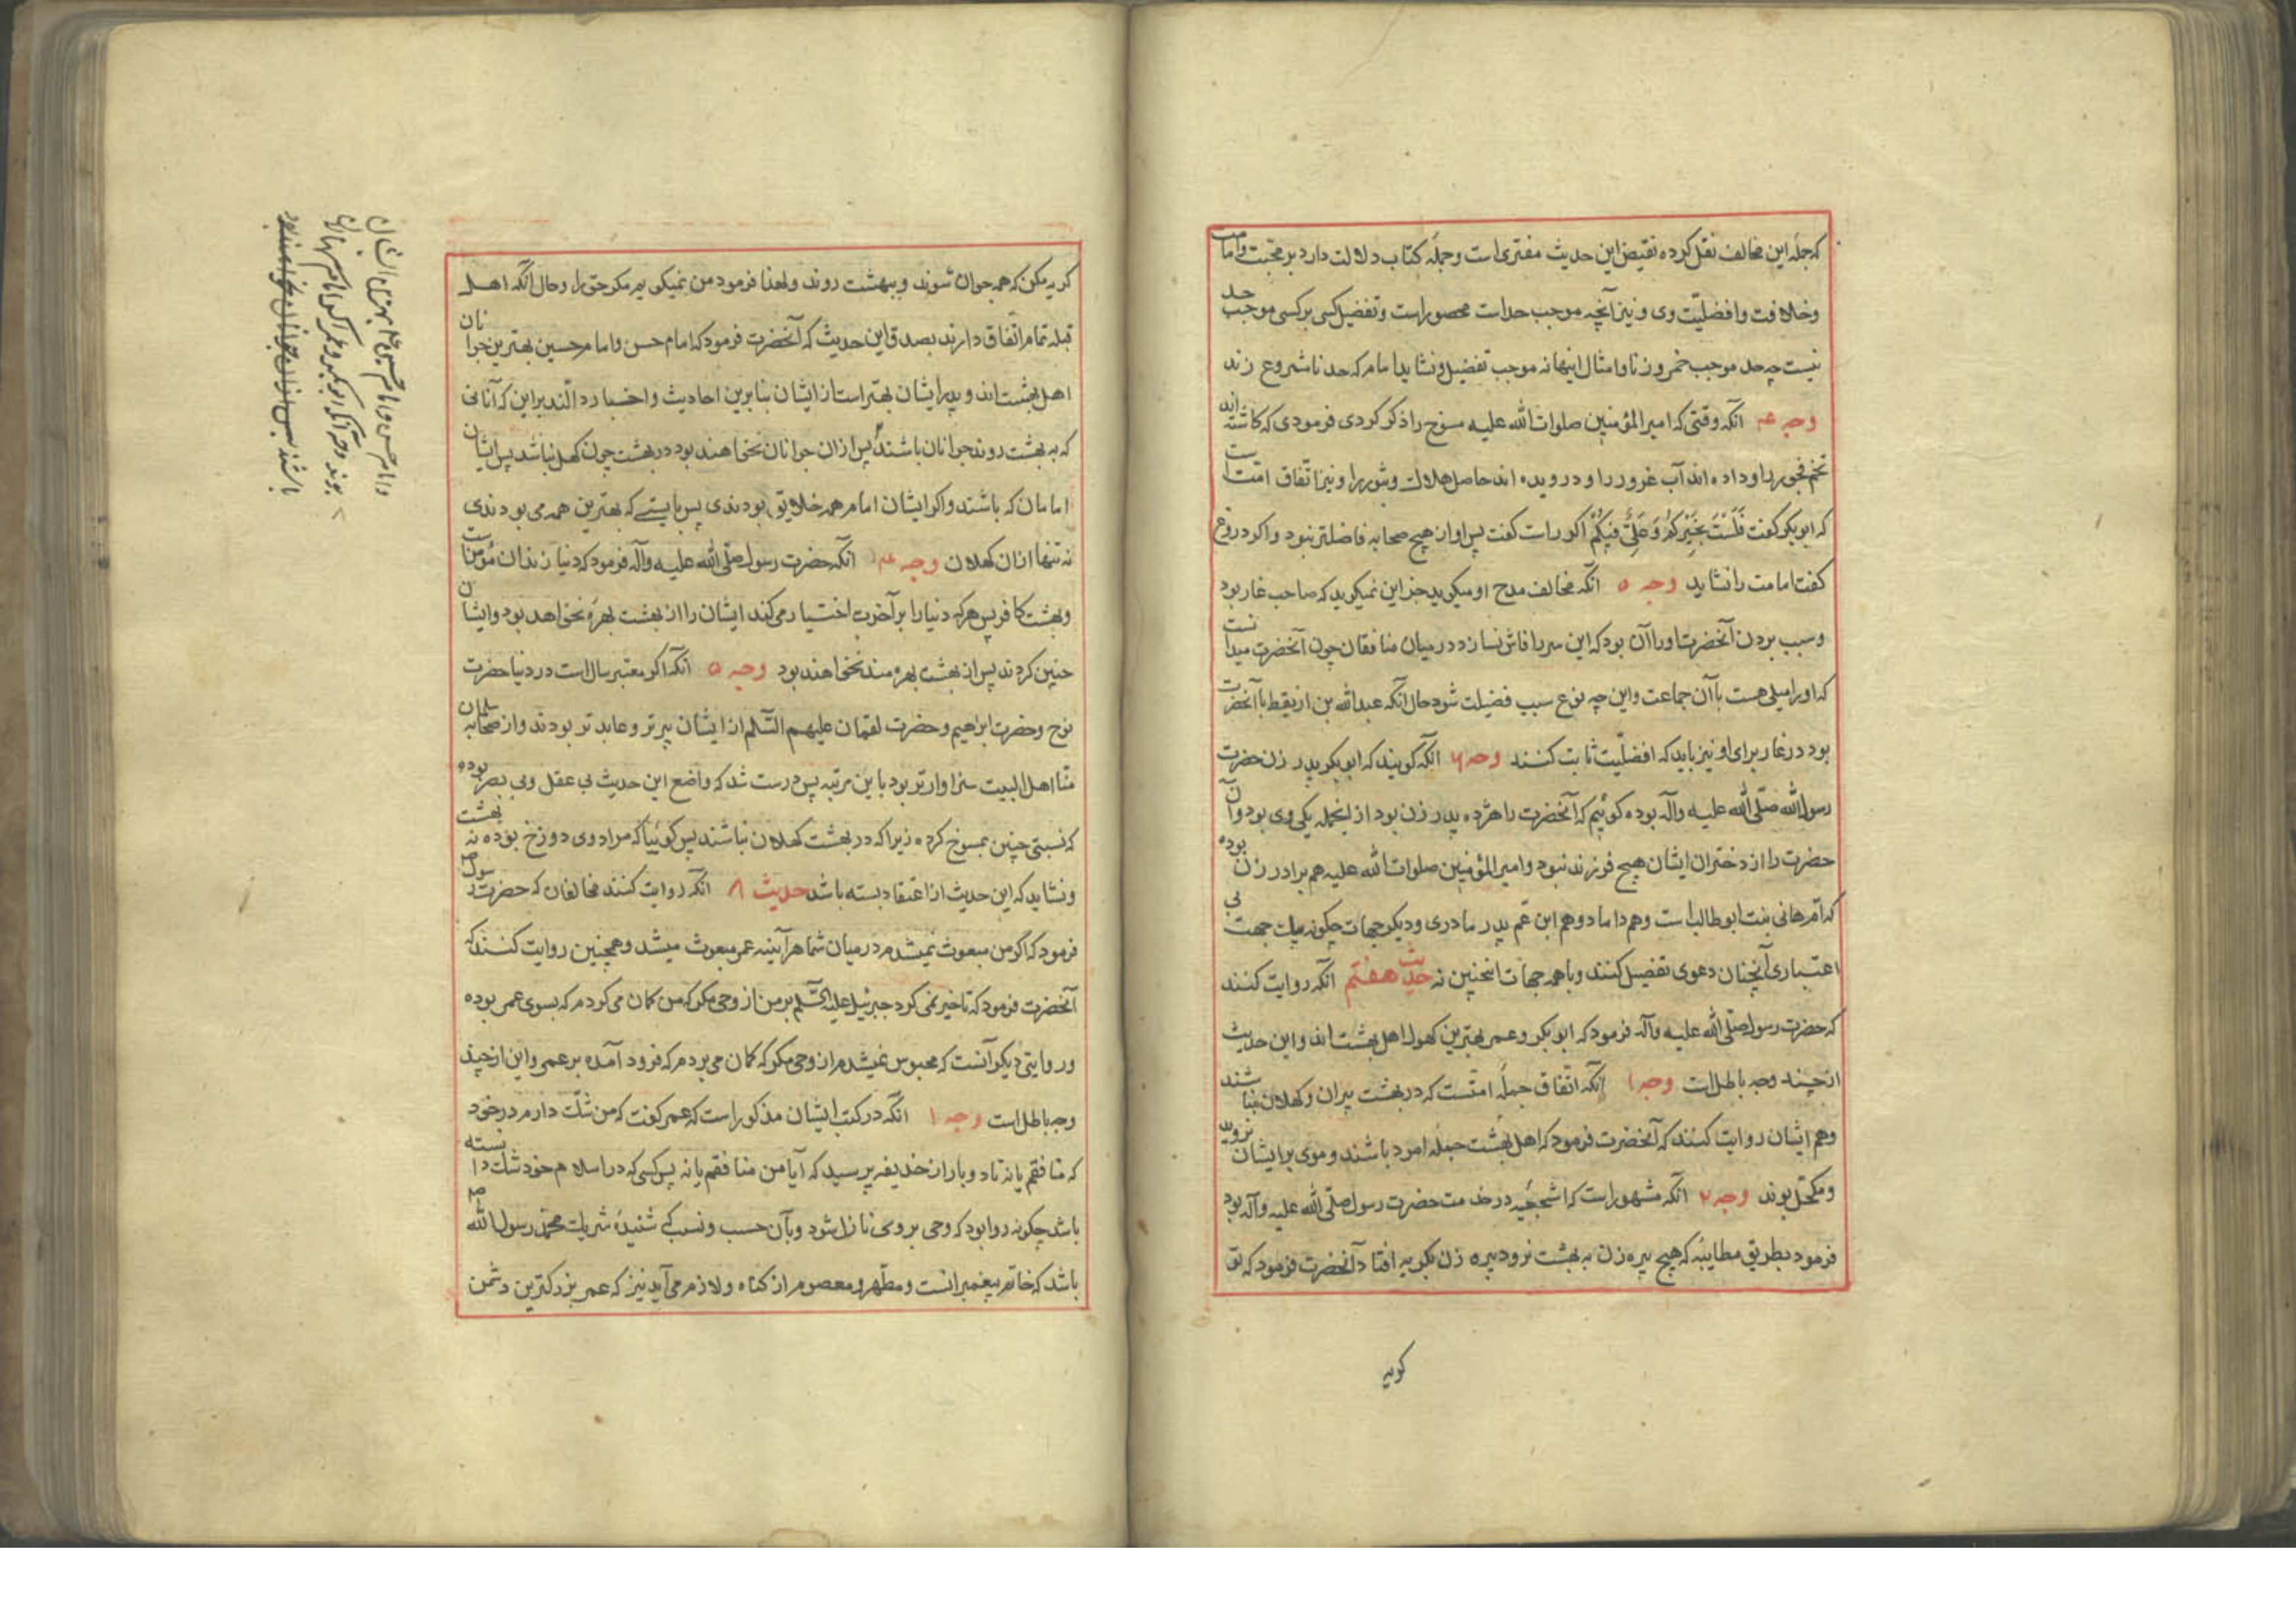 که جمله این مخالف نقل کرده نقیض این حدیث مفتری است و جمله کتاب دلالت دارد بر محبت و امامت
و خلافت و افضلیّت وی و نیز آنچه موجب حد است محصور است و تفضیل کسی بر کسی موجب حد
نیست چه حد موجب خمر و زنا و امثال اینهانه موجب تفضیل و نشاید امام که حد نا مشروع زند
وجه عه انکه وقتی که امیر المؤمنین صلوات الله علیه مسوخ را ذکر کردی فرمودی که کاشته اند
تخم فجور را و داده اند آب غرور را و درویده اند حاصل هلاک و ثبور را و نیز اتّفاق امّت است
که ابو بکر کفت فَلَسْتُ بِخَیْرِکُمْ وَعَلِیٌّ فِیکُمْ اکر راست کفت پس او از هیچ صحابه فاضلتر نبود و اکر دروغ
کفت امامت را نشاید وجه ۵ انکه مخالف مدح او میکوید جز این نمیکوید که صاحب غار بود
و سبب بردن آنحضرت او را آن بود که این سر را فاش نسازد در میان منافقان چون آنحضرت میدانست
که او را میلی هست با آن جماعت و این چه نوع سبب فضیلت شود حال آنکه عبدالله بن اریقط با آنحضرت
بود در غار برای او نیز باید که افضلیّت ثابت کنند وجه ۶ انکه کویند که ابو بکر پدر زن حضرت
رسول الله صلّی الله علیه وآله بوده کوئیم که آنحضرت را هژده پدر زن بود از اینجمله یکی وی بود و آن
حضرت را از دختران ایشان هیچ فرزند نبود و امیر المؤمنین صلوات الله علیه هم برادر زن بوده
که امّ هانی بنت ابو طالب است و هم داماد و هم ابن عّم پدر مادری و دیکر جهات چکونه بیک جهت بی
اعتباری آنچنان دعوی تفضیل کنند و با همه جهات اینچنین نه حدیث هفتم انکه روایت کنند
که حضرت رسول صلّی الله علیه وآله فرمود که ابو بکر و عمر بهترین کهول اهل بهشت اند و این حدیث
از چند وجه باطل است وجه ۱ آنکه اتّفاق جملهٔ امتست که در بهشت پیران و کهلان نباشند
و هم ایشان روایت کنند که آنحضرت فرمود که اهل بهشت جمله امرد باشند و موی بر ایشان نروید
و مکحّل بوند وجه ۲ انکه مشهور است که اشجعیّه در خدمت حضرت رسول صلّی الله علیه وآله بود
فرمود بطریق مطایبه که هیچ پیره زن به بهشت نرود پیره زن بکریه افتاد آنحضرت فرمود که تو
کریه
کریه مکن که همه جوان شوند و ببهشت روند و لهذا فرمود من نمیکویم مکر حق را و حال انکه اهل
قبله تمام اتّفاق دارند بصدق این حدیث که آنحضرت فرمود که امام حسن و امام حسین بهترین جوانان
اهل بهشت اند و پدر ایشان بهتر است از ایشان بنا برین احادیث و اخبار دالّند بر این که آنانی
که به بهشت روند جوانان باشند پس از آن جوانان نخواهند بود در بهشت چون کهل نباشد پس ایشان
امامان که باشند و اکر ایشان امام همه خلایق بودندی پس بایستے که بهترین همه می بودندی
نه تنها از آن کهلان وجه عه انکه حضرت رسول صلّی الله علیه وآله فرمود که دنیا زندان مؤمن است
و بهشت کافر پس هر که دنیا را بر آخرت اختیار می کند ایشان را از بهشت بهرهٔ نخواهد بود و ایشان
چنین کردند پس از بهشت بهره مند نخواهند بود وجه ۵ انکه اکر معتبر سال است در دنیا حضرت
نوح و حضرت ابراهیم و حضرت لقمان علیهم السّلام از ایشان پیر تر و عابد تر بودند و از صحابه سلمان
منّا اهل البیت سزاوار تر بود باین مرتبه پس درست شد که واضع این حدیث بی عقل و بی بصر بوده
که نسبتی چنین بمسوخ کرده زیرا که در بهشت کهلان نباشند پس کوئیا که مراد وی دوزخ بوده نه بهشت
و نشاید که این حدیث از اعتقاد بسته باشد حدیث ۸ انکه روایت کنند مخالفان که حضرت رسول ص
فرمود که اکر من مبعوث نمیشدم در میان شما هر آینه عمر مبعوث میشد و همچنین روایت کنند که
آنحضرت فرمود که تاخیر نمی کرد جبرئیل علیه السّلام بر من از وحی مکر که من کمان می کردم که بسوی عمر بوده
و روایتی دیکر آنست که محبوس نمیشدم از وحی مکر که کمان می بردم که فرود آمده بر عمر و این از چند
وجه باطل است وجه ۱ انکه در کتب ایشان مذکور است که عمر کفت که من شک دارم در خود
که منافقم یا نه تا دو بار از حذیفه پرسید که آیا من منافقم یا نه پس کسی که در اسلام خود شک داشته
باشد چکونه روا بود که وحی بر وی نازل شود و بآن حسب و نسب کے شنیدهٔ شریک محمّد رسول الله ص
باشد که خاتم پیغمبرانست و مطّهر و معصوم از کناه و لازم می آید نیز که عمر بزرکترین دشمن
و امام حسن و امام حسین هم بهترین ایشان
بوند وجه آنکه ابو بکر و عمر اکر امام
باشند پس از آن جوانان نخواهند بود